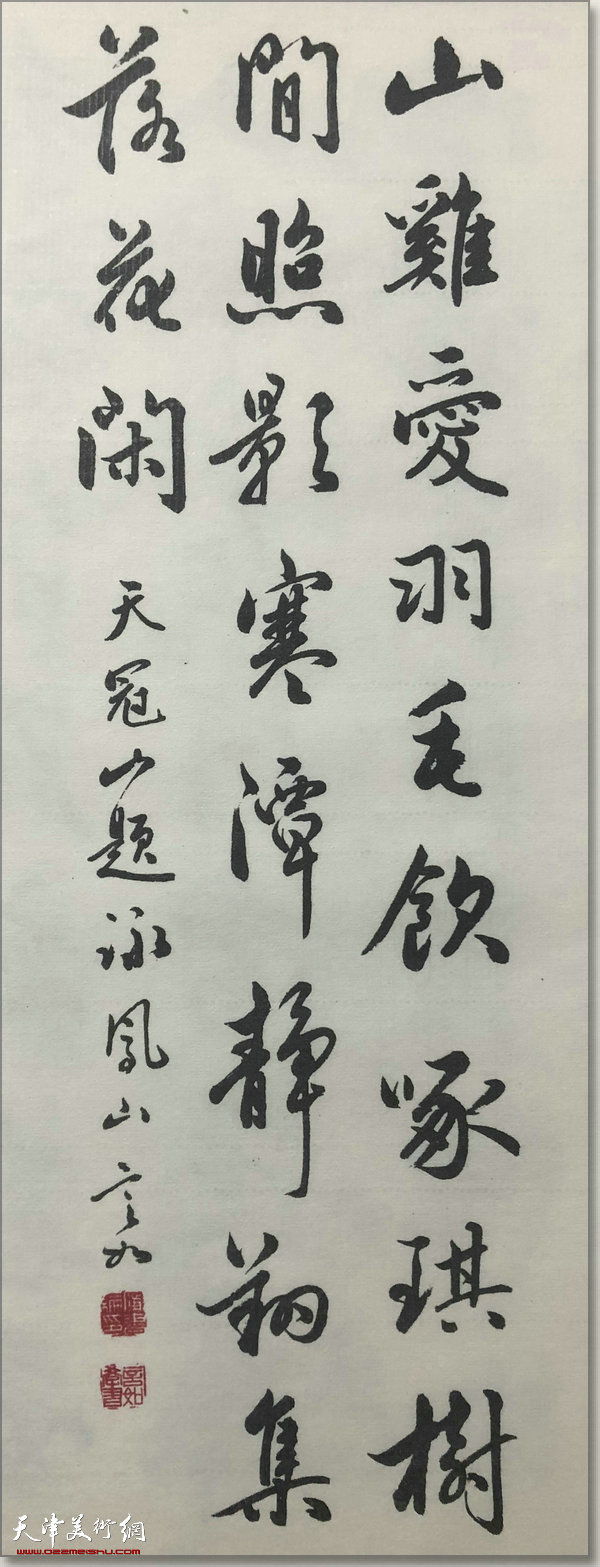 山雞愛羽毛飲啄琪樹
間照影寒潭靜翔集
落花閑
天冠山題詠鳳山言如
天津美術網
www.022meishu.com